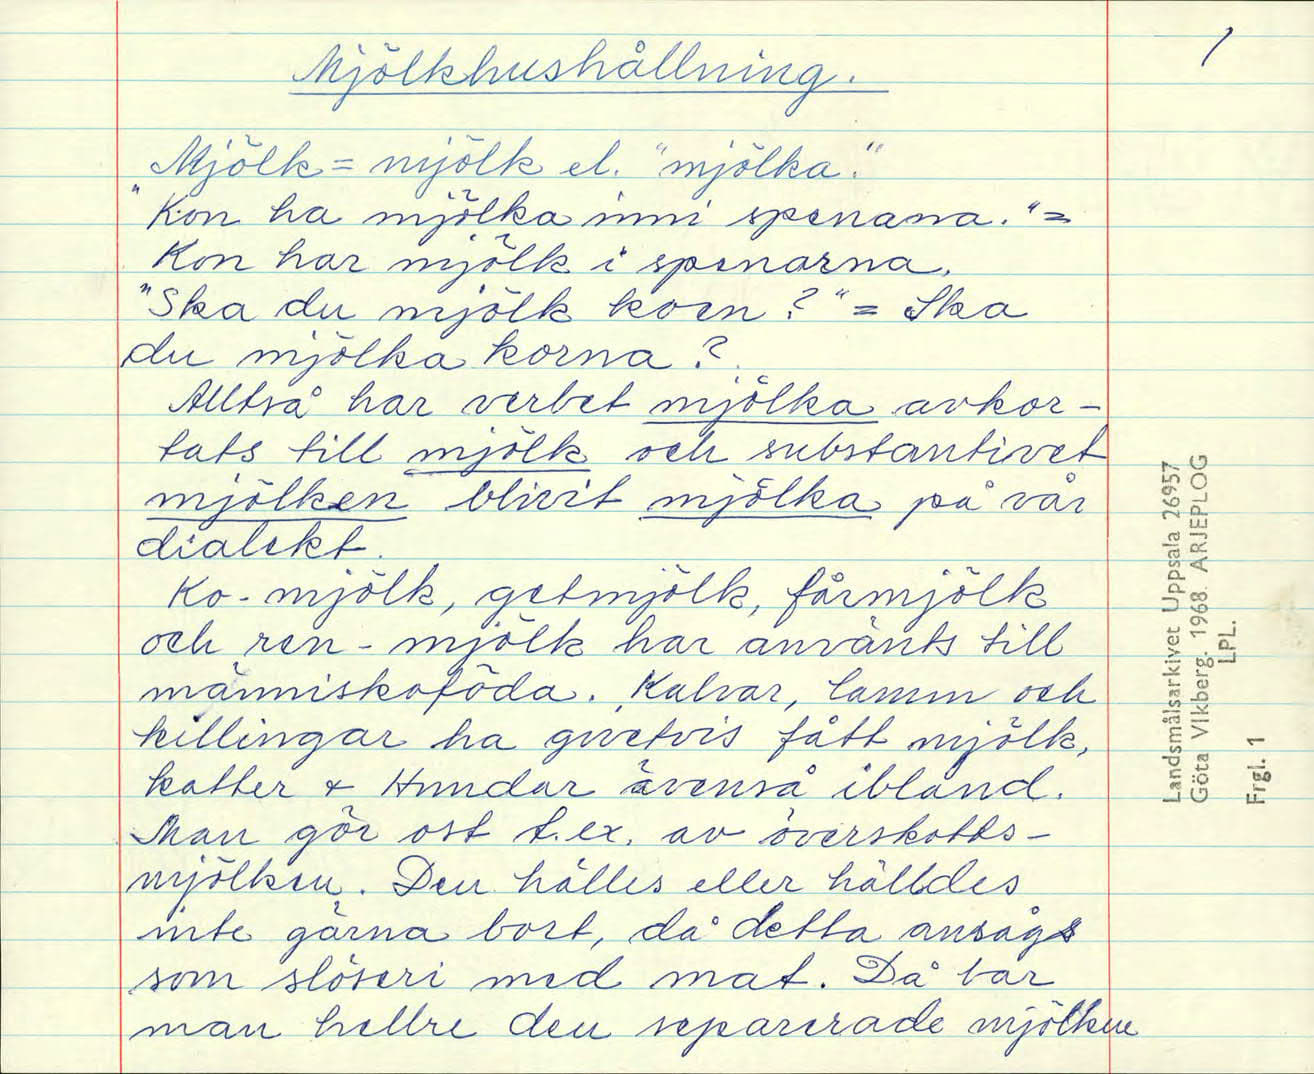 1
Mjölkhushållning.
Mjölk = mjölk el. "mjölka."
"Kon ha mjölka inni spenana." =
Kon har mjölk i spenarna.
"Ska du mjölk koen?" = Ska
du mjölka korna?
Alltså har verbet mjölka avkor-
tats till mjölk och substantivet
mjölken blivit mjölka på vår
dialekt.
Ko-mjölk, getmjölk, fårmjölk
och ren-mjölk har använts till
människoföda. Kalvar, lamm och
killingar ha givetvis fått mjölk,
katter & Hundar ävenså ibland.
Man gör ost t.ex. av överskotts-
mjölken. Den hälles eller hälldes
inte gärna bort, då detta ansågs
som slöseri med mat. Då bar
man hellre den separerade mjölken
Landsmålsarkivet Uppsala 26957
Göta Vikberg. 1968. ARJEPLOG
LPL.
Frgl. 1